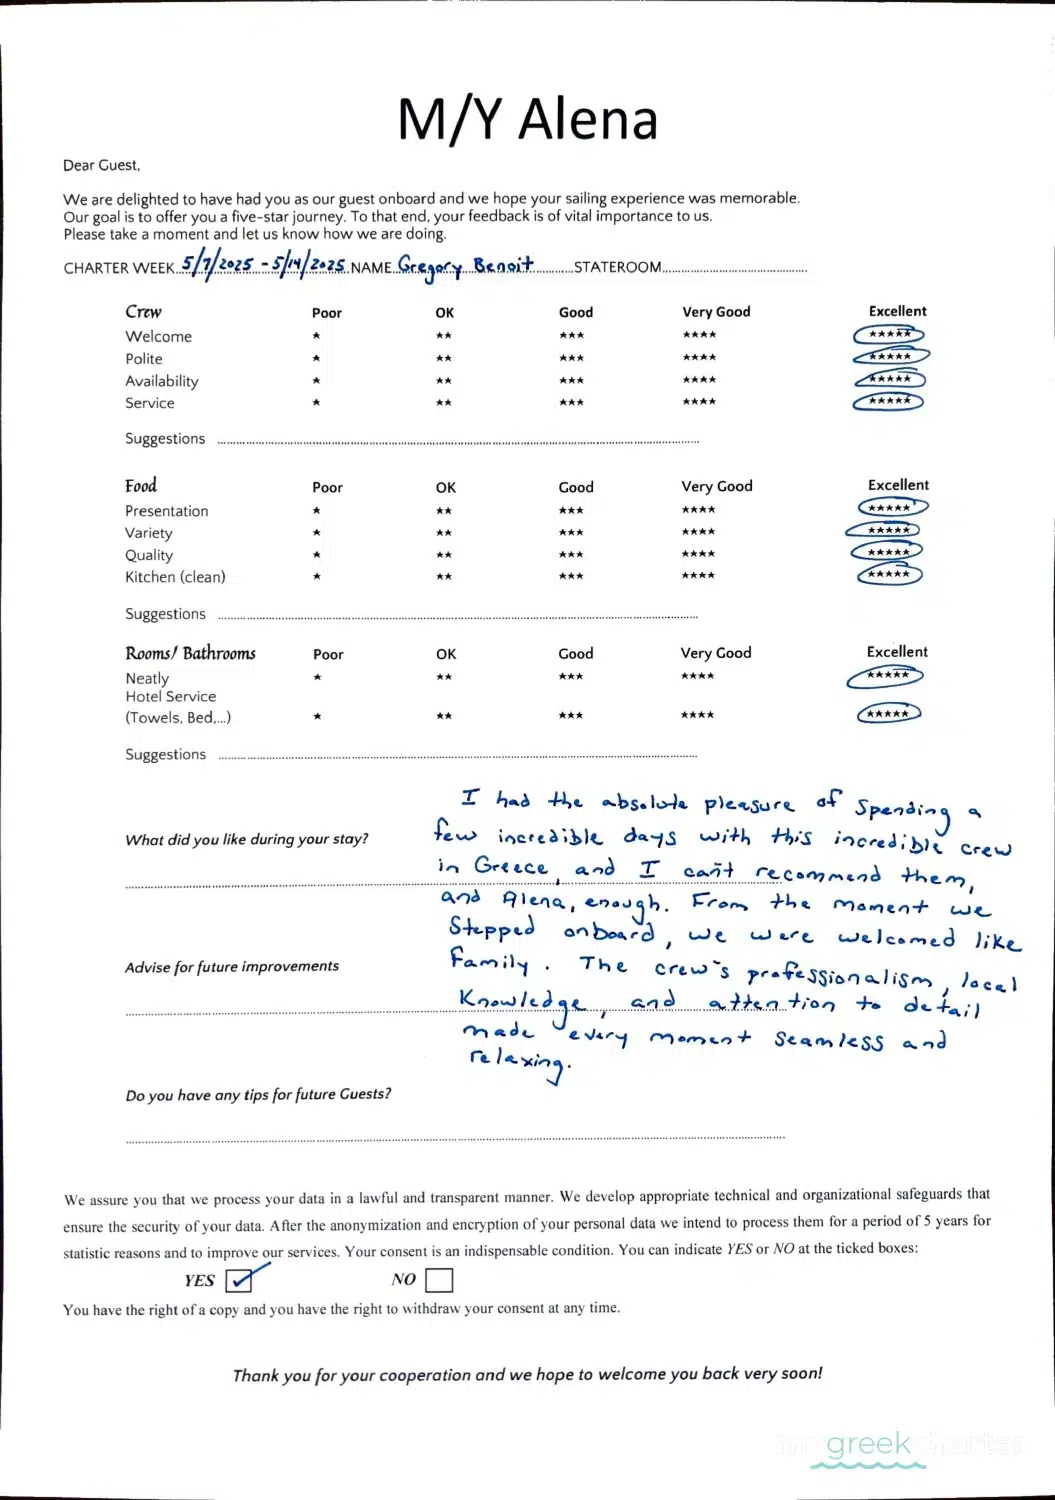 M/Y Alena
Dear Guest,
We are delighted to have had you as our guest onboard and we hope your sailing experience was memorable.
Our goal is to offer you a five-star journey. To that end, your feedback is of vital importance to us.
Please take a moment and let us know how we are doing.
CHARTER WEEK 5/7/2025 - 5/14/2025 NAME Gregory Benoit STATEROOM
Crew Poor OK Good Very Good Excellent
Welcome ★ ★★ ★★★ ★★★★ ★★★★★
Polite ★ ★★ ★★★ ★★★★ ★★★★★
Availability ★ ★★ ★★★ ★★★★ ★★★★★
Service ★ ★★ ★★★ ★★★★ ★★★★★
Suggestions
Food Poor OK Good Very Good Excellent
Presentation ★ ★★ ★★★ ★★★★ ★★★★★
Variety ★ ★★ ★★★ ★★★★ ★★★★★
Quality ★ ★★ ★★★ ★★★★ ★★★★★
Kitchen (clean) ★ ★★ ★★★ ★★★★ ★★★★★
Suggestions
Rooms/ Bathrooms Poor OK Good Very Good Excellent
Neatly ★ ★★ ★★★ ★★★★ ★★★★★
Hotel Service
(Towels, Bed,...) ★ ★★ ★★★ ★★★★ ★★★★★
Suggestions
What did you like during your stay?
I had the absolute pleasure of spending a
few incredible days with this incredible crew
in Greece, and I can't recommend them,
and Alena, enough. From the moment we
stepped onboard, we were welcomed like
family. The crew's professionalism, local
knowledge, and attention to detail
made every moment seamless and
relaxing.
Advise for future improvements
Do you have any tips for future Guests?
We assure you that we process your data in a lawful and transparent manner. We develop appropriate technical and organizational safeguards that
ensure the security of your data. After the anonymization and encryption of your personal data we intend to process them for a period of 5 years for
statistic reasons and to improve our services. Your consent is an indispensable condition. You can indicate YES or NO at the ticked boxes:
YES ☑ NO ☐
You have the right of a copy and you have the right to withdraw your consent at any time.
Thank you for your cooperation and we hope to welcome you back very soon!
my greek charter